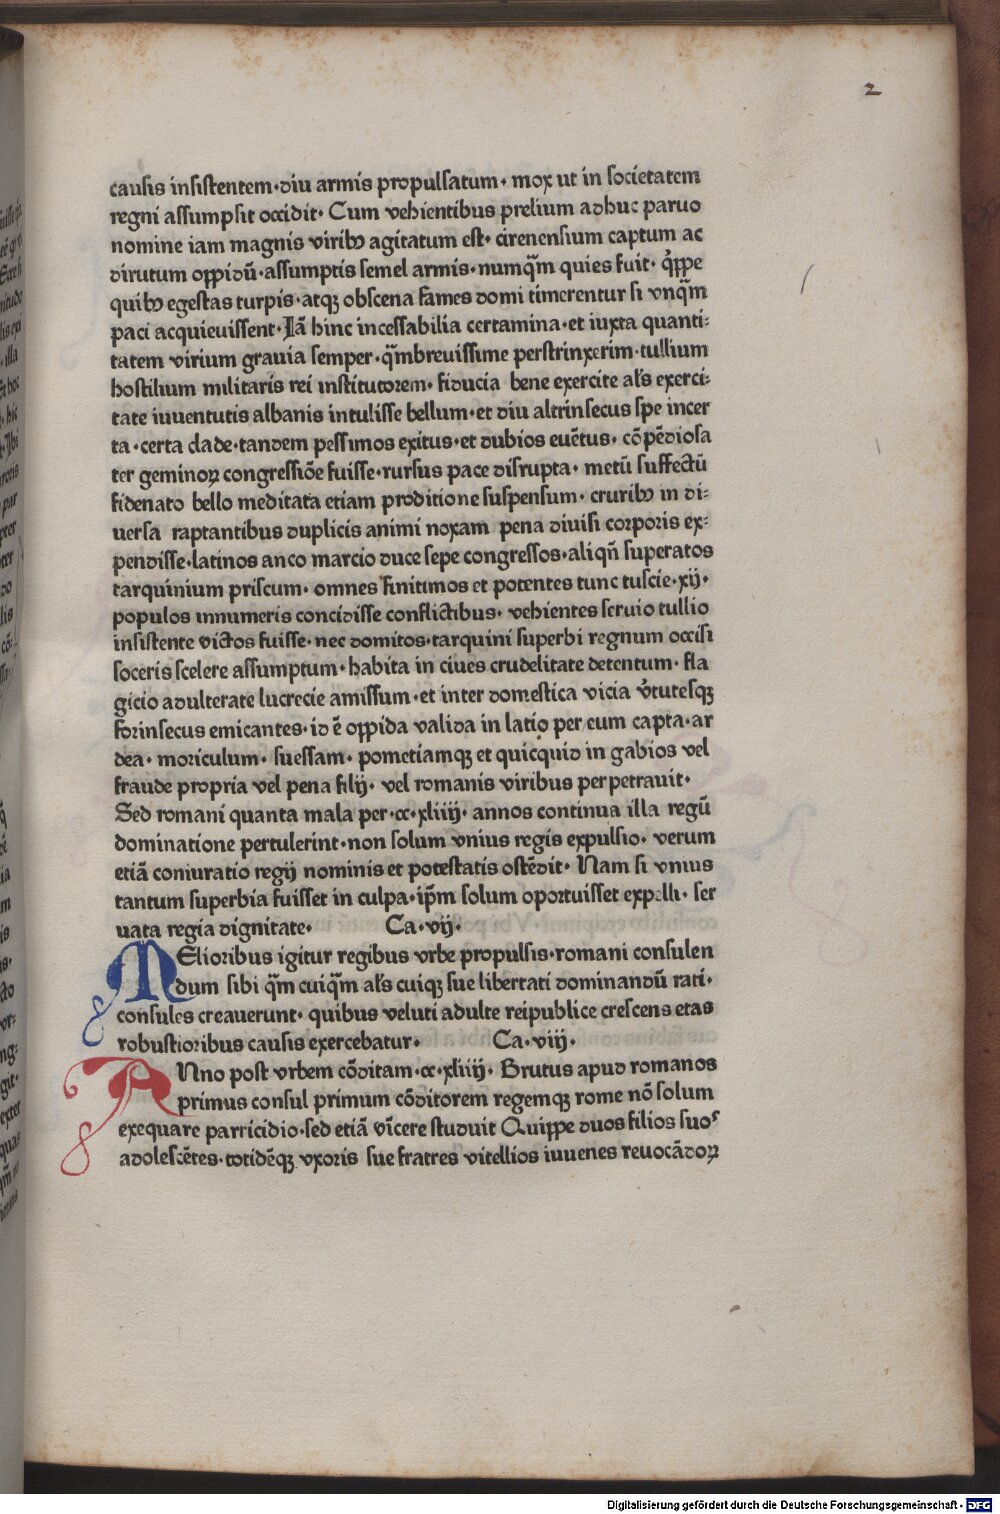 2
causis insistentem·diu armis propulsatum· mox ut in societatem
regni assumpsit occidit· Cum vehientibus prelium adhuc paruo
nomine iam magnis viribꝫ agitatum est· cirenensium captum ac
dirutum oppidū·assumptis semel armis·numq̄m quies fuit· q̊ppe
quibꝫ egestas turpis·atqꝫ obscena fames domi timerentur si vnq̄m
paci acquieuissent·Iā hinc incessabilia certamina·et iuxta quanti⸗
tatem virium grauia semper·q̄mbreuissime perstrinxerim·tullium
hostilium militaris rei institutorem· fiducia bene exercite al's exerci⸗
tate iuuentutis albanis intulisse bellum·et diu altrinsecus spe incer
ta·certa clade·tandem pessimos exitus·et dubios euētus· cōpēdiosa
ter geminoꝝ congressiōe fuisse·rursus pace disrupta· metū suffectū
fidenato bello meditata etiam proditione suspensum· cruribꝫ in di⸗
uersa raptantibus duplicis animi noxam pena diuisi corporis ex⸗
pendisse·latinos anco marcio duce sepe congressos·aliqn̄ superatos
tarquinium priscum· omnes finitimos et potentes tunc tuscie·xij·
populos innumeris concidisse conflictibus· vehientes seruio tullio
insistente victos fuisse· nec domitos·tarquini superbi regnum occisi
soceris scelere assumptum·habita in ciues crudelitate detentum· fla
gicio adulterate lucrecie amissum·et inter domestica vicia v̄tutesqꝫ
forinsecus emicantes·id ē oppida valida in latio per eum capta·ar
dea· moriculum· suessam· pometiamqꝫ et quicquid in gabios vel
fraude propria vel pena filij· vel romanis viribus perpetrauit·
Sed romani quanta mala per·cc·xliiij· annos continua illa regū
dominatione pertulerint·non solum vnius regis expulsio· verum
etiā coniuratio regij nominis et potestatis ostēdit· Nam si vnius
tantum superbia fuisset in culpa·ip̄m solum oportuisset expelli· ser
uata regia dignitate· Ca·vij·
MElioribus igitur regibus vrbe propulsis·romani consulen
dum sibi q̄m cuiq̄m al's cuiqꝫ sue libertati dominandū rati·
consules creauerunt· quibus veluti adulte reipublice crescens etas
robustioribus causis exercebatur· Ca·viij·
ANno post vrbem cōditam·cc·xliiij· Brutus apud romanos
primus consul primum cōditorem regemqꝫ rome nō solum
exequare parricidio·sed etiā vīcere studuit Quippe duos filios suoˢ
adolescētes·totidēqꝫ vxoris sue fratres vitellios iuuenes reuocādoꝝ
Digitalisierung gefördert durch die Deutsche Forschungsgemeinschaft · DFG